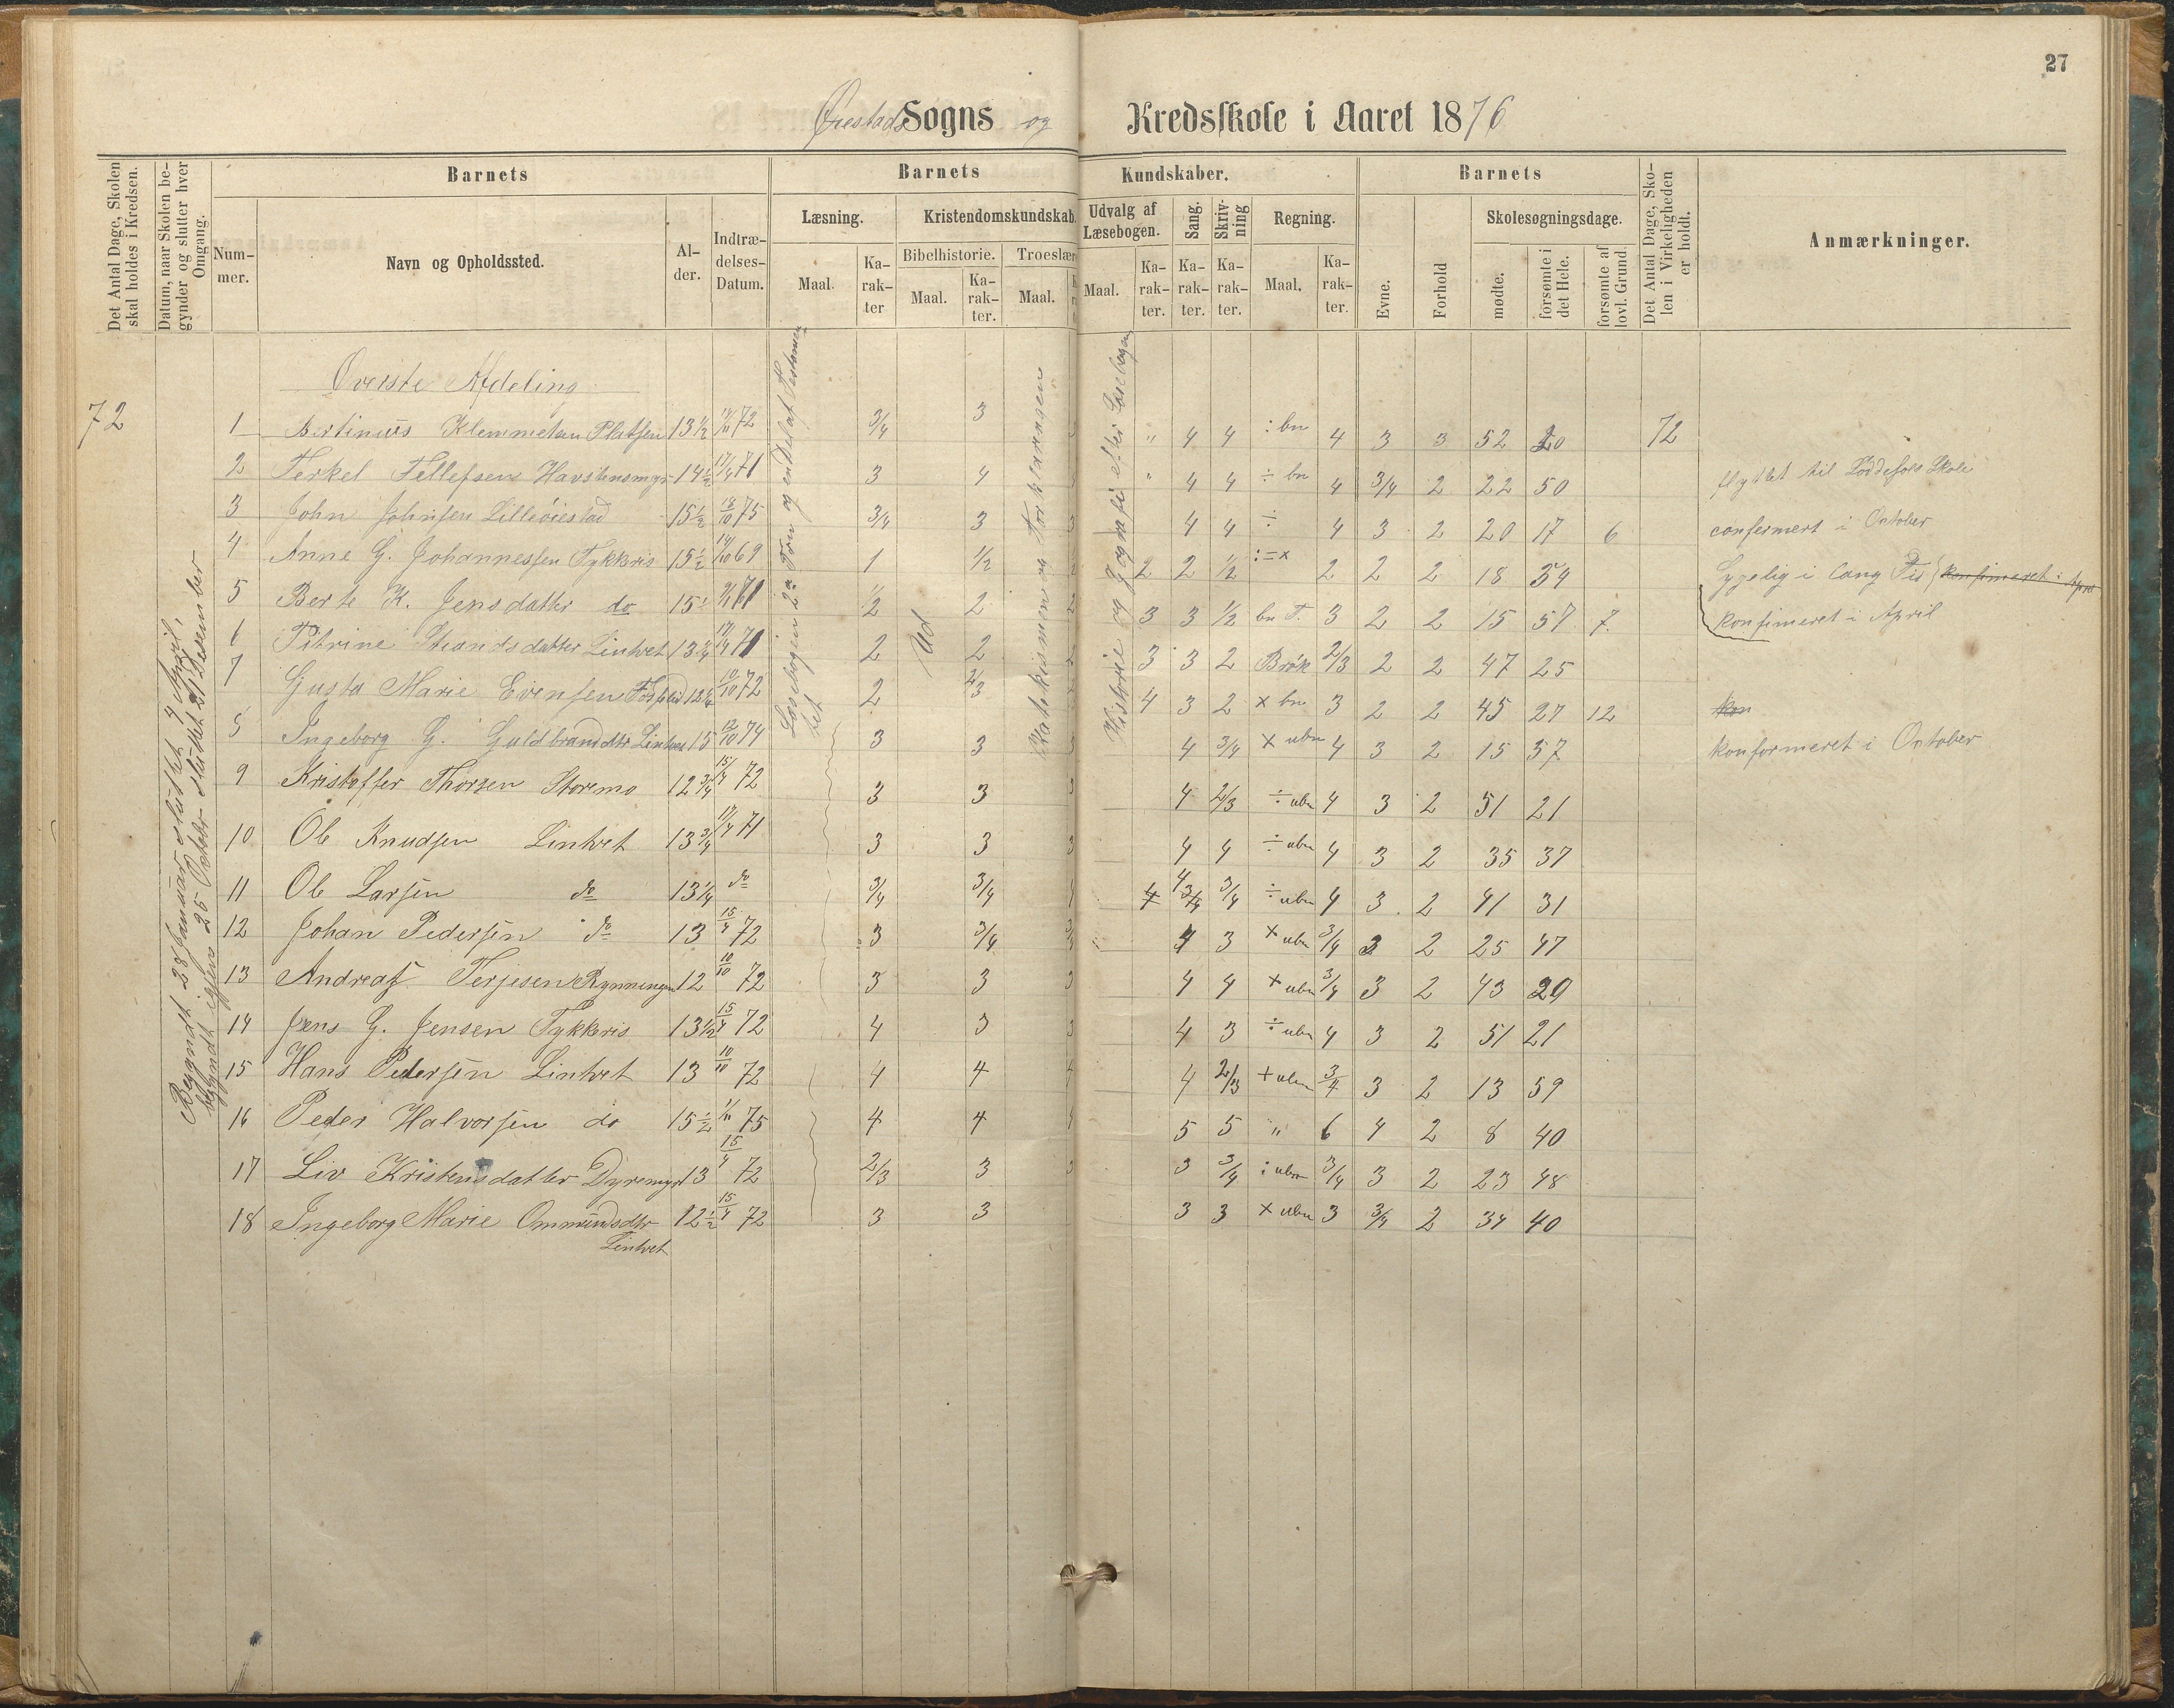 27
Øiestads Sogns og Kredsskole i Aaret 1876
Det Antal Dage, Skolen skal holdes i Kredsen.
Datum, naar Skolen begynder og slutter hver Omgang.
Barnets
Nummer.
Navn og Opholdssted.
Alder.
Indtrædelses-Datum.
Barnets Kundskaber.
Læsning.
Maal.
Karakter
Kristendomskundskab.
Bibelhistorie.
Maal.
Karakter.
Troeslære
Maal.
Udvalg af Læsebogen.
Maal.
Karakter.
Sang.
Karakter.
Skrivning
Karakter.
Regning.
Maal.
Karakter.
Barnets
Evne.
Forhold
Skolesøgningsdage.
mødte.
forsømte i det Hele.
forsømte af lovl. Grund
Det Antal Dage, Skolen i Virkeligheden er holdt.
Anmærkninger.
72
Begyndt 28 Januar sluttet 4 April,
begyndt igjen 25 October sluttet 21 Desember
Læsebogen 2den Trin og en Del af Testamentet
Ud
Katekismen og Forklaringen
Historie og Geografi efter Læsebogen
Øverste Afdeling
1 Bertinius Klemmetsen Platsen 13½ 72 3/4 3 " 4 4 : bn 4 3 3 52 20 72
2 Terkel Tellefsen Havstensmyr 14½ 17/4 71 3 4 " 4 4 ÷ bn 4 3/4 2 22 50 flyttet til Løddesøls Skole
3 John Johnsen Lilleøiestad 15½ 18/10 75 3/4 3 3 4 4 ÷ 4 3 2 20 17 6 confermert i October
4 Anne G. Johannesen Tykkeris 15½ 69 1 1/2 2 2 2 1/2 :=x 2 2 2 18 54 Sygelig i lang Tid konfimeret i April
5 Berte K. Jensdatter do 15½ 71 1/2 2 2 3 3 1/2 bn T. 3 2 2 15 57 7 konfimeret i April
6 Petrine Strandsdatter Lintvet 13¼ 17/4 71 2 2 2 3 3 2 Brøk 2/3 2 2 47 25
7 Gusta Marie Evensen 12¼ 10/10 72 2 2/3 4 3 2 x bn 3 2 2 45 27 12 kon
8 Ingeborg G. Guldbrandsdtr Lintvet 15 12/10 74 3 3 3 4 3/4 x ubn 4 3 2 15 57 konformeret i October
9 Kristoffer Thorsen Storemo 12¾ 15/4 72 3 3 3 4 2/3 ÷ ubn 4 3 2 51 21
10 Ole Knudsen Lintvet 13¾ 17/4 71 3 3 3 4 4 ÷ ubn 4 3 2 35 37
11 Ole Larsen do 13¼ do 3/4 3/4 4 4 3/4 3/4 ÷ ubn 4 3 2 41 31
12 Johan Pedersen do 13 15/4 72 3 3/4 3/4 4 3 x ubn 3/4 3 2 25 47
13 Andreas Terjesen Rynningen 12 10/10 72 3 3 3 4 4 x ubn 3/4 3 2 43 29
14 Jens G. Jensen Tykkeris 13½ 15/4 72 4 3 3 4 3 ÷ ubn 4 3 2 51 21
15 Hans Pedersen Lintvet 13 10/10 72 4 4 4 4 2/3 x ubn 3/4 3 2 13 59
16 Peder Halvorsen do 15½ 75 4 4 4 5 5 " 6 4 2 8 40
17 Liv Kristensdatter Dyremyr 13 15/4 72 2/3 3 3 3 3/4 : ubn 3/4 3 2 23 48
18 Ingeborg Marie Ommundsdtr 12½ 15/4 72 3 3 3 3 x ubn 3 3/4 2 34 40
Lintvet